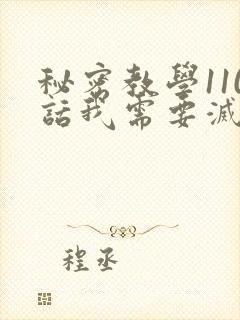 秘密教學110
話我需要滅
程丞